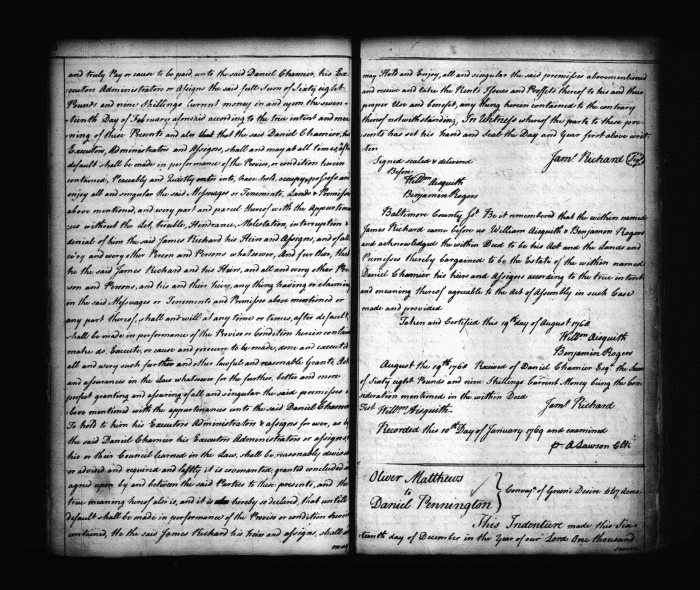 and truly Pay or cause to be paid, unto the said Daniel Chamier, his Exe
cutors Administrators or Assigns the said full Sum of Sixty eight
Pounds and nine Shillings Current money in and upon the seven
teenth Day of February aforesaid according to the true intent and mea
ning of these Presents and also that the said Daniel Chamier, his
Executors, Administrators and Assigns, shall and may at all times after
default shall be made in performance of the Proviso, or condition herein
contained, Peaceably and Quietly enter into, have, hold, occupy, possess and
enjoy all and singular the said Messuages or Tenements, Lands & Premisses
above mentioned, and every part and parcel thereof with the Appurtenan
ces without the Let, trouble, Hindrance, Molestation, interruption &
denial of him the said James Richard his Heirs and Assigns, and of all
every and every other Person and Persons whatsoever, And further, that
he the said James Richard and his Heirs, and all and every other Per
son and Persons, and his and their Heirs, any thing having or claiming
in the said Messuages or Tenements and Premisses above mentioned or
any part thereof, shall and will at any time or times, after default
shall be made in performance of the Proviso or Condition herein contained
make do, Execute, or cause and procure to be made, done and executed
all and every such further and other lawful and reasonable Grants, Acts
and assurances in the Law whatsoever for the further, better and more
perfect granting and assuring of all and singular the said premisses a
bove mentioned with the appurtenances unto the said Daniel Chamier
To hold to him his Executors Administrators & assigns for ever, as by
the said Daniel Chamier his Executors Administrators or assigns,
his or their Council learned in the Law, shall be reasonably devised
or advised and required and lastly, it is covenanted, granted concluded and
agreed upon by and between the said Parties to these presents, and the
true meaning hereof also is, and it is hereby so declared, that until
default shall be made in performance of the Proviso or condition herein
contained, He the said James Richard his Heirs and assigns, shall and
may
may Hold and Enjoy, all and singular the said premisses abovementioned
and receive and take the Rents Issues and Proffits thereof to his and their
proper Use and benefit, any thing herein contained to the contrary
thereof notwithstanding, In Witness whereof the parties to these pre
sents has set his hand and Seal the Day and Year first above writ
ten
Signed sealed & delivered
Jams Richard
Before
Willm Aisquith
Benjamin Rogers
Baltimore County Sct Be it remembered that the within named
James Richard came before us William Aisquith & Benjamin Rogers
and acknowledged the within Deed to be his Act and the Lands and
Premisses thereby bargained to be the Estate of the within named
Daniel Chamier his Heirs and Assigns according to the true intent
and meaning thereof agreeable to the Act of Assembly in such Case
made and provided
Taken and Certified this 19th day of August 1768
Willm Aisquith
Benjamin Rogers
August the 19th 1768 Received of Daniel Chamier Esqr. the Sum
of Sixty eight Pounds and nine Shillings Current Money being the Con
sideration mentioned in the within Deed
Test Willm Aisquith
Jams Richard
Recorded this 10th Day of January 1769 and examined
p A Lawson Clk
Oliver Matthews
to
Daniel Pennington
Convey. of Green's Desire
This Indenture made this Six
teenth day of December in the Year of our Lord One thousand
seven